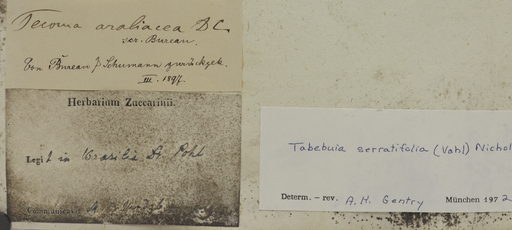 Tecoma araliacea DC.
scr. Bureau.
Von Bureau & Schumann zurückgek.
III. 1897.
Herbarium Zuccarinii.
Legit in Brasilia Dr. Pohl
Tabebuia serratifolia (Vahl) Nichol
Determ. – rev. A.H. Gentry München 1972